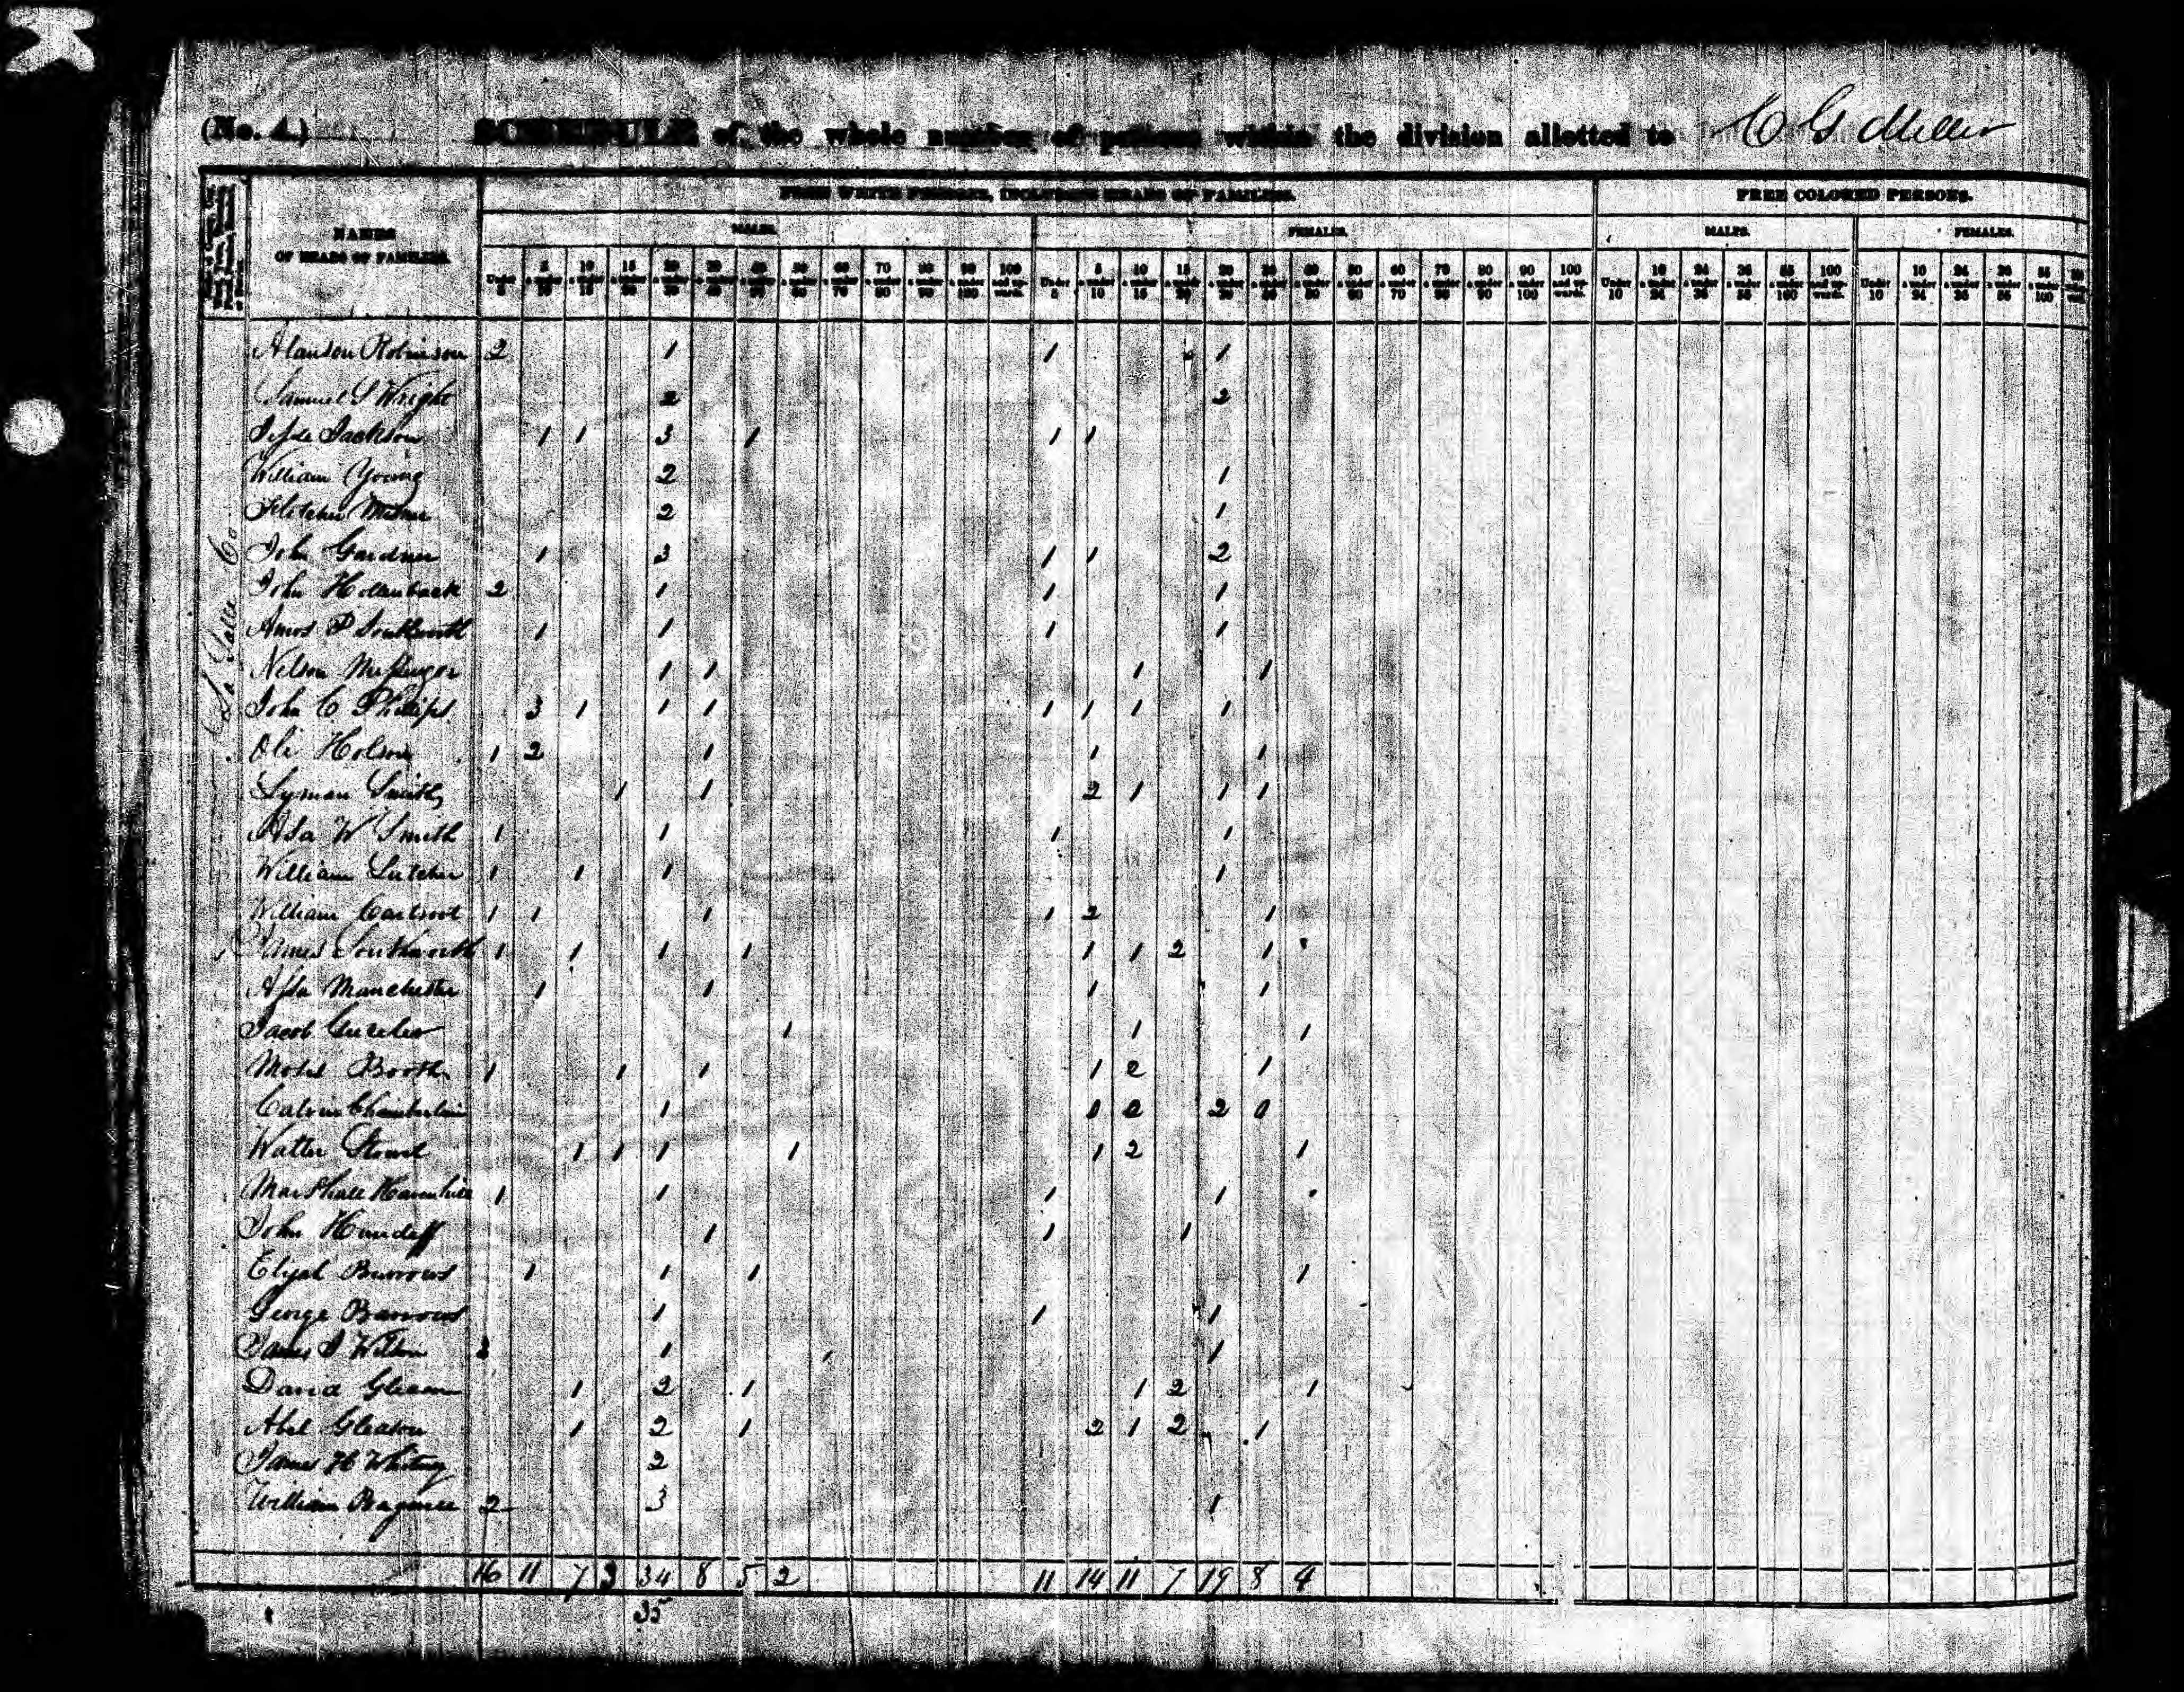 (No. 4.) SCHEDULE of the whole number of persons within the division allotted to C G Miller
FREE WHITE PERSONS, INCLUDING HEADS OF FAMILIES. FREE COLORED PERSONS.
NAMES OF HEADS OF FAMILIES. MALES. FEMALES. MALES. FEMALES.
La Salle Co
Alanson Robinson 2 1 1 1
Samuel S Wright 2 2
Jesse Jackson 1 1 3 1 1 1
William Young 2 1
Fletcher 2 1
John Gardner 1 3 1 1 2
John Hollenback 2 1 1 1
Amos P Southworth 1 1 1 1
Nelson Messenger 1 1 1 1
John C Phillips 3 1 1 1 1 1 1 1
Ole Holson 1 2 1 1 1
Lyman Smith 1 1 2 1 1 1
Asa W Smith 1 1 1 1
William 1 1 1 1
William 1 1 1 1 2 1
James Southworth 1 1 1 1 1 1 2 1
Assa Manchester 1 1 1 1
Jacob 1 1 1
Moses Booth 1 1 1 1 2 1
Calvin Chamberlin 1 0 0 2 0
Walter Stowel 1 1 1 1 1 2 1
Marshall 1 1 1 1
John 1 1 1
Elijah Burrows 1 1 1 1
George Barrows 1 1 1
James 3 1 1
David 1 2 1 1 2 1
Abel Gleason 1 2 1 2 1 2 1
James H Whitney 2
William 2 3 1
16 11 7 3 34 8 5 2 11 14 11 7 19 8 4
35